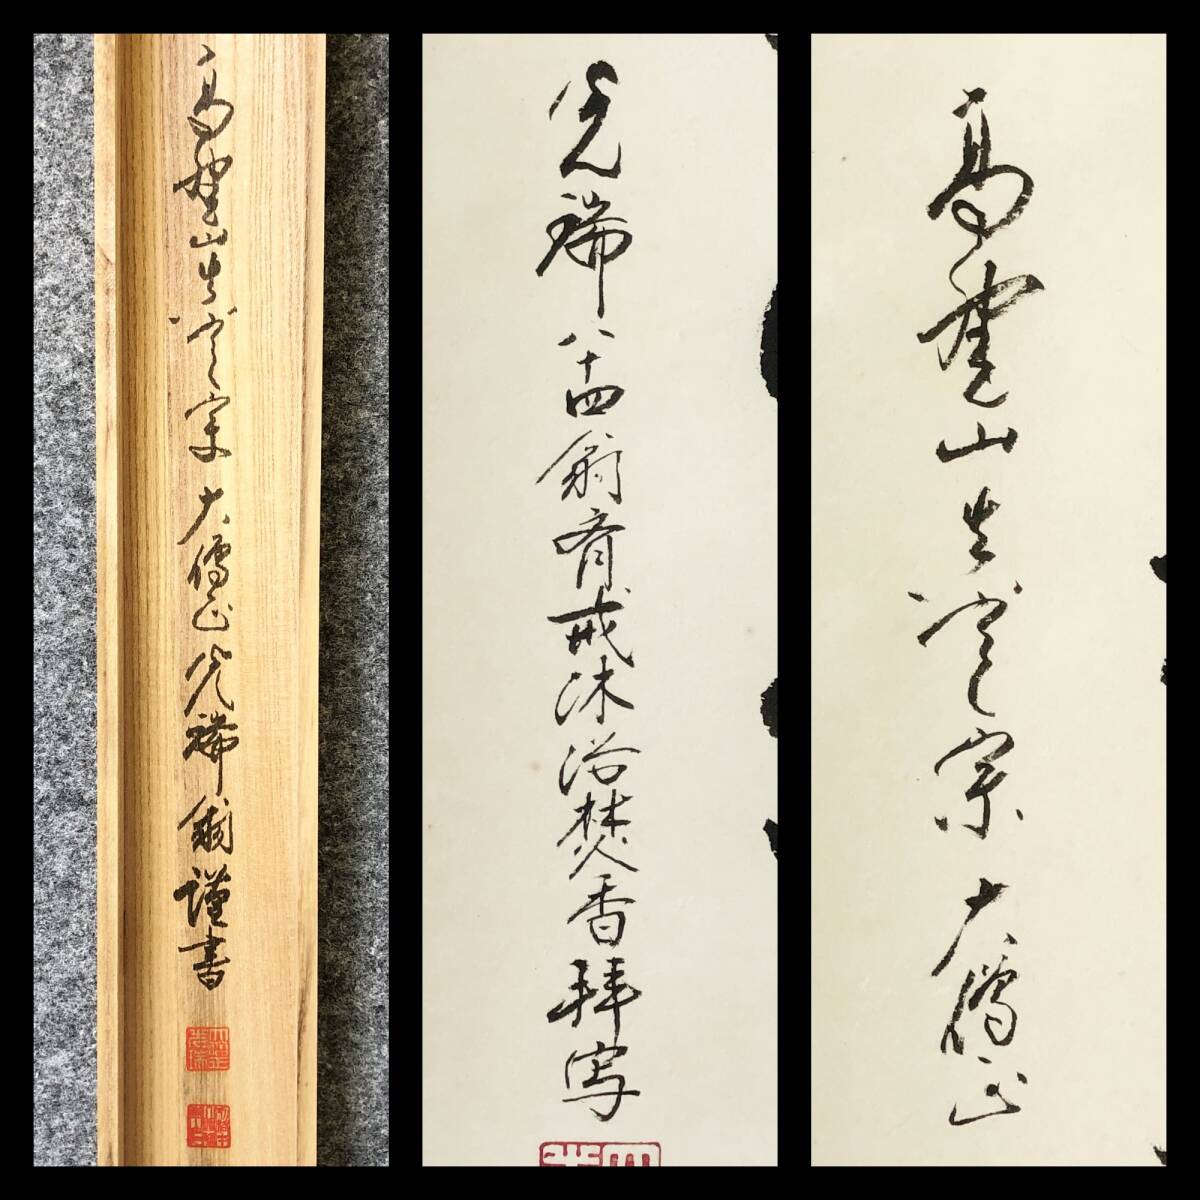 高埜山真言宗大僧正
光瑞八十四翁斉戒沐浴焚香拝写
高埜山真言宗大僧正光瑞翁謹書